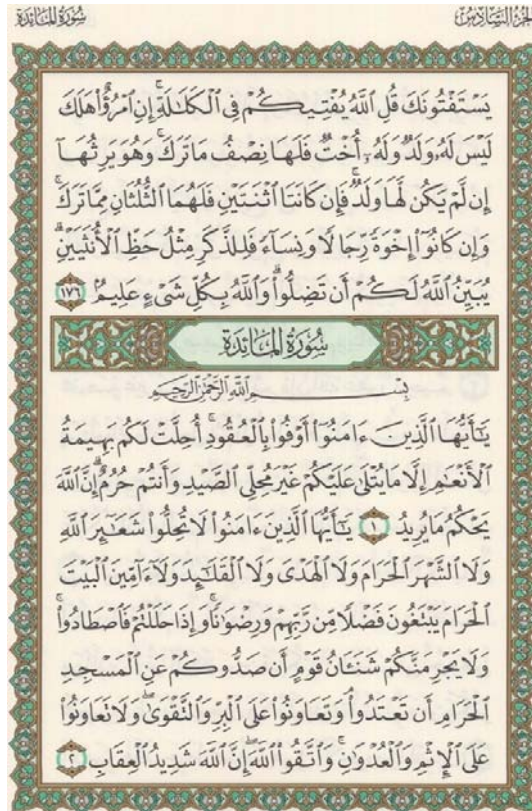 الجزء السادس
سورة المائدة
يَسْتَفْتُونَكَ قُلِ ٱللَّهُ يُفْتِيكُمْ فِى ٱلْكَلَٰلَةِ ۚ إِنِ ٱمْرُؤٌا۟ هَلَكَ
لَيْسَ لَهُۥ وَلَدٌ وَلَهُۥٓ أُخْتٌ فَلَهَا نِصْفُ مَا تَرَكَ ۚ وَهُوَ يَرِثُهَآ
إِن لَّمْ يَكُن لَّهَا وَلَدٌ ۚ فَإِن كَانَتَا ٱثْنَتَيْنِ فَلَهُمَا ٱلثُّلُثَانِ مِمَّا تَرَكَ ۚ
وَإِن كَانُوٓا۟ إِخْوَةً رِّجَالًا وَنِسَآءً فَلِلذَّكَرِ مِثْلُ حَظِّ ٱلْأُنثَيَيْنِ ۗ
يُبَيِّنُ ٱللَّهُ لَكُمْ أَن تَضِلُّوا۟ ۗ وَٱللَّهُ بِكُلِّ شَىْءٍ عَلِيمٌۢ ١٧٦
سورة المائدة
بِسْمِ ٱللَّهِ ٱلرَّحْمَٰنِ ٱلرَّحِيمِ
يَٰٓأَيُّهَا ٱلَّذِينَ ءَامَنُوٓا۟ أَوْفُوا۟ بِٱلْعُقُودِ ۚ أُحِلَّتْ لَكُم بَهِيمَةُ
ٱلْأَنْعَٰمِ إِلَّا مَا يُتْلَىٰ عَلَيْكُمْ غَيْرَ مُحِلِّى ٱلصَّيْدِ وَأَنتُمْ حُرُمٌ ۗ إِنَّ ٱللَّهَ
يَحْكُمُ مَا يُرِيدُ ١ يَٰٓأَيُّهَا ٱلَّذِينَ ءَامَنُوا۟ لَا تُحِلُّوا۟ شَعَٰٓئِرَ ٱللَّهِ
وَلَا ٱلشَّهْرَ ٱلْحَرَامَ وَلَا ٱلْهَدْىَ وَلَا ٱلْقَلَٰٓئِدَ وَلَآ ءَآمِّينَ ٱلْبَيْتَ
ٱلْحَرَامَ يَبْتَغُونَ فَضْلًا مِّن رَّبِّهِمْ وَرِضْوَٰنًا ۚ وَإِذَا حَلَلْتُمْ فَٱصْطَادُوا۟ ۚ
وَلَا يَجْرِمَنَّكُمْ شَنَـَٔانُ قَوْمٍ أَن صَدُّوكُمْ عَنِ ٱلْمَسْجِدِ
ٱلْحَرَامِ أَن تَعْتَدُوا۟ ۘ وَتَعَاوَنُوا۟ عَلَى ٱلْبِرِّ وَٱلتَّقْوَىٰ ۖ وَلَا تَعَاوَنُوا۟
عَلَى ٱلْإِثْمِ وَٱلْعُدْوَٰنِ ۚ وَٱتَّقُوا۟ ٱللَّهَ ۖ إِنَّ ٱللَّهَ شَدِيدُ ٱلْعِقَابِ ٢